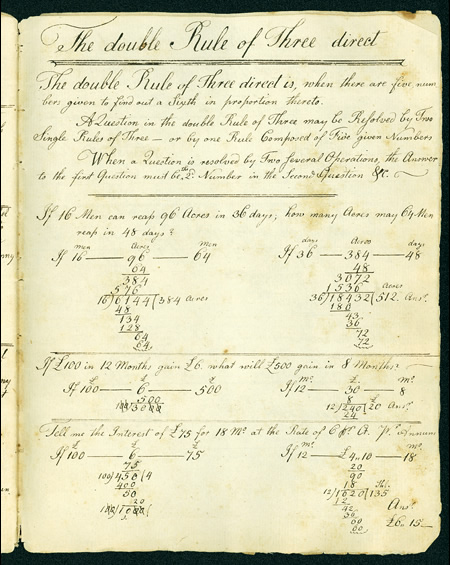 The double Rule of Three direct
The double Rule of Three direct is, when there are five num
bers given to find out a Sixth in proportion thereto.
A Question in the double Rule of Three may be Resolved by Two
Single Rules of Three — or by one Rule Composed of Five given Numbers
When a Question is resolved by Two Several Operations, the Answer
to the first Question must be the 2d. Number in the Second Question &c.
If 16 Men can reap 96 Acres in 36 days; how many Acres may 64 Men
reap in 48 days?
men Acres Men
If 16 — 96 — 64
64
384
576
16)6144(384 Acres
48
134
128
64
64
days Acres days
If 36 — 384 — 48
48
3072
1536 Acres
36)18432(512 Ans.
180
43
36
72
72
If £100 in 12 Months gain £6. what will £500 gain in 8 Months?
£ £ £
If 100 — 6 — 500
500
100)3000
Mo. £ Mo.
If 12 — 30 — 8
8
12)240(20 Ans.
24
Tell me the Interest of £75 for 18 Mo. at the Rate of 6 Pr. Ct. Pr. Annum
£ £ £
If 100 — 6 — 75
75
100)450(4
400
50
20
100)1000(
Mo. £ Mo.
If 12 — 4.. 10 — 18
20
90
18
12)1620(135
12
42
36
60
60
Ans.
£6.. 15